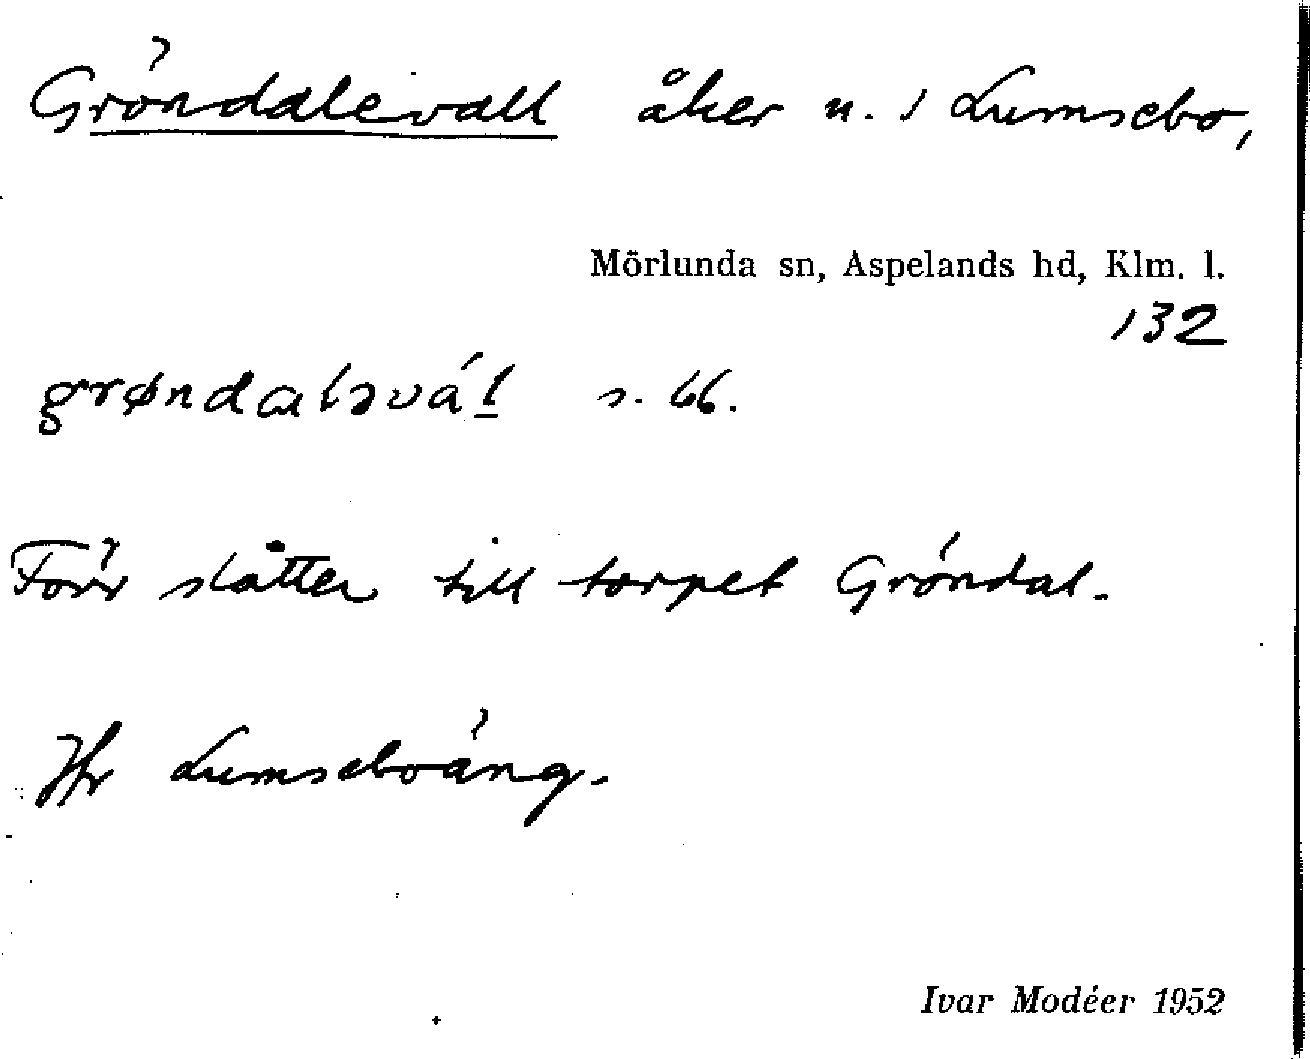 Gröndalevall åker n. 1 Lumsebo,
Mörlunda sn, Aspelands hd, Klm. l.
132
grøndaləvál s. 66.
Förr slåtter till torpet Gröndal.
Jfr Lumseboäng.
Ivar Modéer 1952